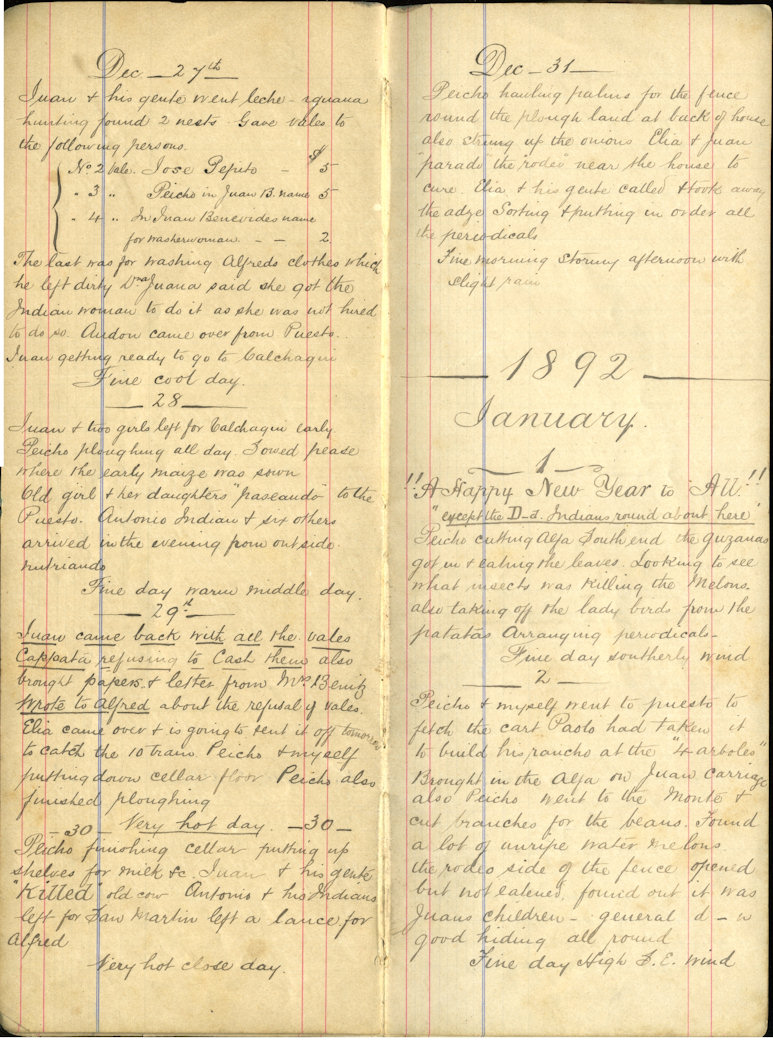 Dec. 27th
Juan & his gente went leche - iguana
hunting found 2 nests. Gave vales to
the following persons.
$
No. 2 Vale. Jose Pepito - 5
" 3 " Peicho in Juan B. name 5
" 4 " In Juan Benevides name
for washerwoman - - 2
The last was for washing Alfreds clothes which
he left dirty Dña Juana said she got the
Indian woman to do it as she was not hired
to do so. Andon came over from Puesto.
Juan getting ready to go to Calchaqui
Fine cool day.
28
Juan & two girls left for Calchaqui early
Peicho ploughing all day. Sowed pease
where the early maize was sown
Old girl & her daughters "paseando" to the
Puesto. Antonio Indian & six others
arrived in the evening from out side
nutriando
Fine day warm middle day.
29th
Juan came back with all the vales
Cappata refusing to Cash them also
brought papers & letter from Mrs. Benitz
Wrote to Alfred about the refusal of vales.
Elia came over & is going to sent it off tomorrow
to catch the 10 train Peicho & myself
putting down cellar floor Peicho also
finished ploughing
Very hot day.
- 30 - - 30 -
Peicho finishing cellar putting up
shelves for milk &c. Juan & his gente
"Killed" old cow Antonio & his Indians
left for San Martin left a lance for
Alfred
Very hot close day.
Dec - 31 -
Peicho hauling palms for the fence
round the plough land at back of house
also strung up the onions Elia & Juan
"parado the "rodeo" near the house to
cure. Elia & his gente called & took away
the adze Sorting & putting in order all
the periodicals
Fine morning Stormy afternoon with
slight rain
1892
January.
1
!! A Happy New Year to "All" !!
"except the D-d. Indians round about here"
Peicho cutting Alfa South end the guzanas
got in & eating the leaves. Looking to see
what insects was killing the Melons.
also taking off the lady birds from the
patatas Arranging periodicals -
Fine day southerly wind
2 -
Peicho & myself went to puesto to
fetch the cart Paolo had taken it
to build his rancho at the "4 arboles"
Brought in the Alfa on Juan Carriage
also Peicho went to the Monte &
cut branches for the beans. Found
a lot of unripe water melons
the rodeo side of the fence opened
but not eatened, found out it was
Juans children - general d - n
good hiding all round
Fine day High S.E. wind